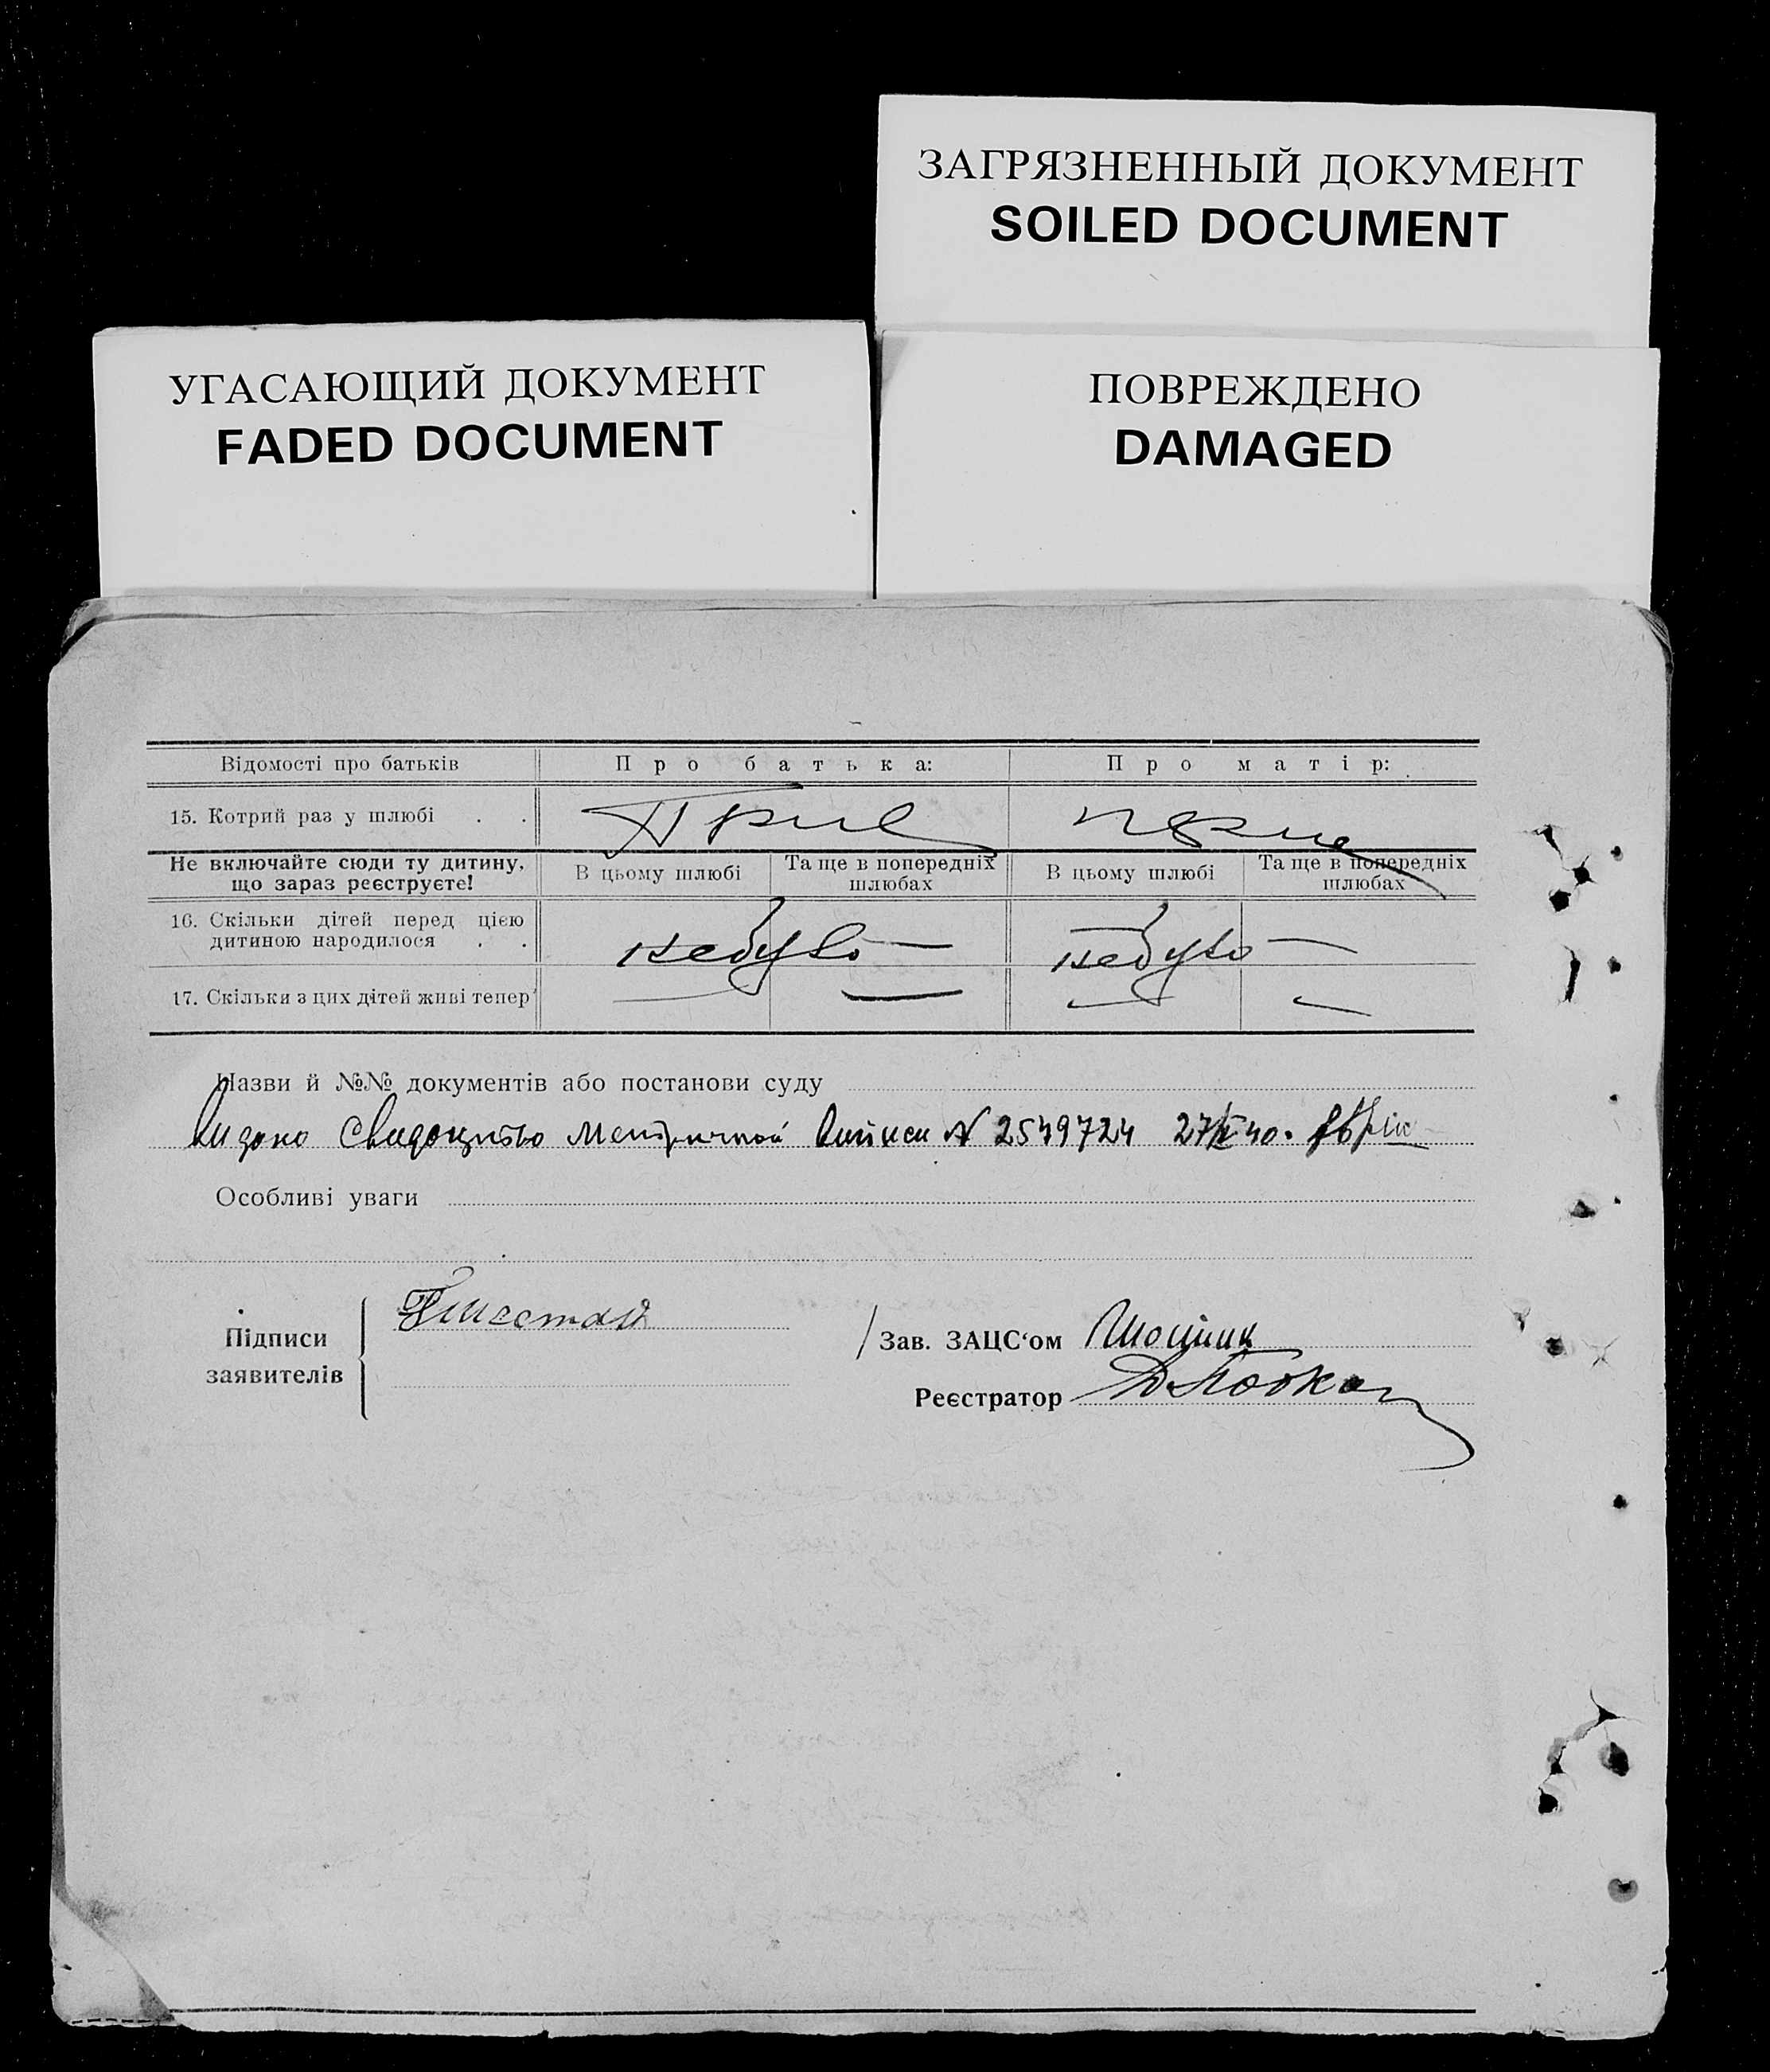 ЗАГРЯЗНЕННЫЙ ДОКУМЕНТ
SOILED DOCUMENT
УГАСАЮЩИЙ ДОКУМЕНТ
FADED DOCUMENT
ПОВРЕЖДЕНО
DAMAGED
Відомості про батьків Про батька: Про матір:
15. Котрий раз у шлюбі . .
Не включайте сюди ту дитину, що зараз реєструєте! В цьому шлюбі Та ще в попередніх шлюбах В цьому шлюбі Та ще в попередніх шлюбах
16. Скільки дітей перед цією
дитиною народилося . . небуло — небуло —
17. Скільки з цих дітей живі тепер — — — —
Назви й №№ документів або постанови суду
Видано Свидоцтво Метричной Виписи № 2549724
Особливі уваги
Підписи
заявителів
Зав. ЗАЦС‘ом
Реєстратор